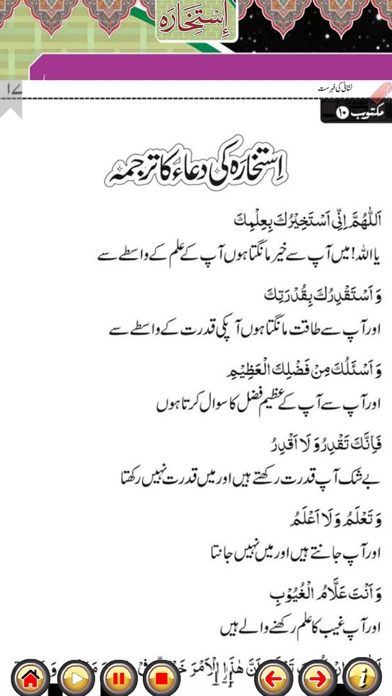 اِسْتِخَارَه
۱۷
نشانی کی فہرست
مکتوب ۱۰
اِستخارہ کی دعاء کا ترجمہ
اَللّٰهُمَّ اِنِّیْ اَسْتَخِیْرُكَ بِعِلْمِكَ
یا اللہ! میں آپ سے خیر مانگتا ہوں آپ کے علم کے واسطے سے
وَ اَسْتَقْدِرُكَ بِقُدْرَتِكَ
اور آپ سے طاقت مانگتا ہوں آپکی قدرت کے واسطے سے
وَ اَسْئَلُكَ مِنْ فَضْلِكَ الْعَظِیْمِ
اور آپ سے آپ کے عظیم فضل کا سوال کرتا ہوں
فَاِنَّكَ تَقْدِرُ وَ لَا اَقْدِرُ
بے شک آپ قدرت رکھتے ہیں اور میں قدرت نہیں رکھتا
وَ تَعْلَمُ وَ لَا اَعْلَمُ
اور آپ جانتے ہیں اور میں نہیں جانتا
وَ اَنْتَ عَلَّامُ الْغُیُوْبِ
اور آپ غیب کا علم رکھنے والے ہیں
هٰذَا الْاَمْرَ
14
i